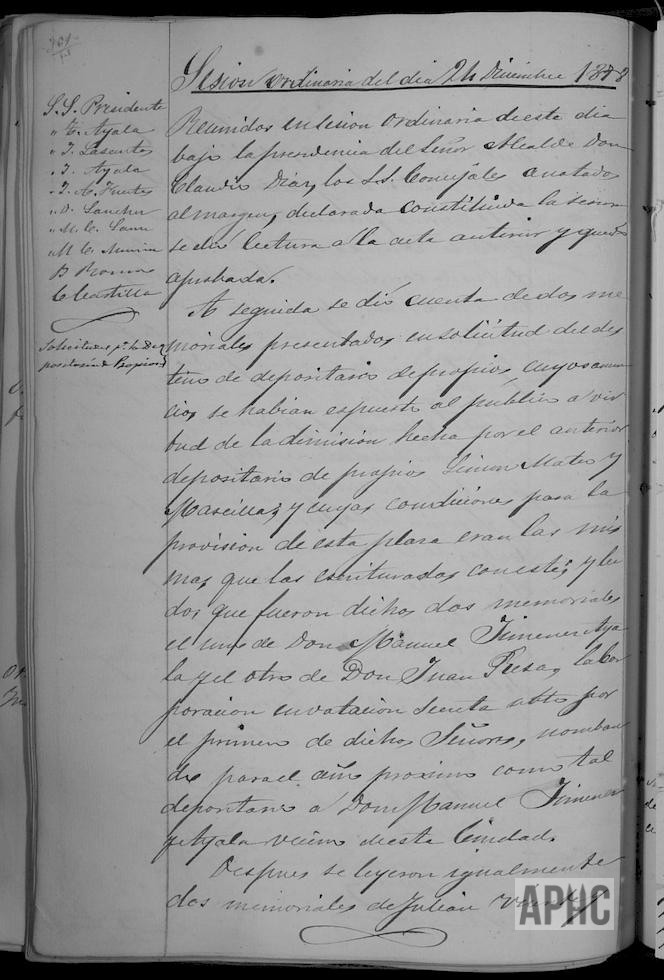 Sesion ordinaria del dia 24 Diciembre 1878
S.S. Presidente
" E. Ayala
" T. Lasantas
" J. Ayala
" J. A. Fuertes
" D. Sanchez
" M. C.
M. C.
B Ramos
C Castilla
Solicitudes pª la De
positaria de Propios
Reunidos en sesion ordinaria de este dia
bajo la presidencia del Señor Alcalde Don
Claudio Diaz, los S.S. Concejales anotados
al margen, declarada constituida la sesion
se dió lectura a la acta anterior y quedó
aprobada.
A seguida se dió cuenta de dos me
moriales presentados en solicitud del des
tino de depositario de propios cuyos anun
cios se habian espuesto al publico a vir
tud de la dimision hecha por el anterior
depositario de propios Simon Mateo y
Mancilla; y cuyas condiciones para la
provision de esta plaza eran las mis
mas que las escrituradas con este; y lei
dos que fueron dichos dos memoriales
el uno de Don Manuel Jimenez Aya
la y el otro de Don Juan Presa, la Cor
poracion en votacion secreta obtó por
el primero de dichos Señores, nombran
do para el año proximo como tal
depositario a Don Manuel Jimenez
y Ayala vecino de esta Ciudad.
Despues se leyeron igualmente
dos memoriales de Julian
APHC